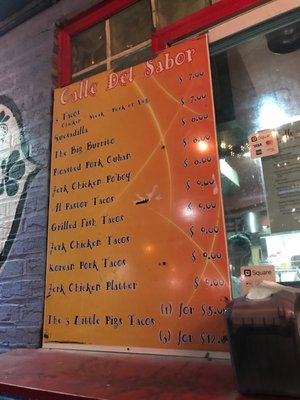 Calle Del Sabor
3 Tacos $ 7.00
Chicken Steak Pork or Veg
Quesadilla $ 7.00
The Big Burrito $ 8.00
Roasted Pork Cuban $ 8.00
Jerk Chicken Po'boy $ 8.00
Al Pastor Tacos $ 9.00
Grilled Fish Tacos $ 9.00
Jerk Chicken Tacos $ 9.00
Korean Pork Tacos $ 9.00
Jerk Chicken Platter $ 9.00
The 3 Little Pigs Tacos (1) for $5.00
(3) for $12.00
Square
VISA
Square